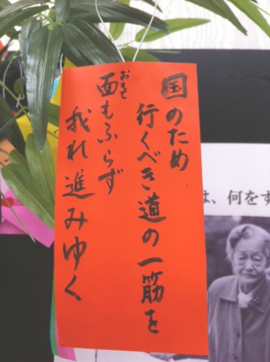 国のため
行くべき道の一筋を
面もふらず
おも
我れ進みゆく
は、何をす